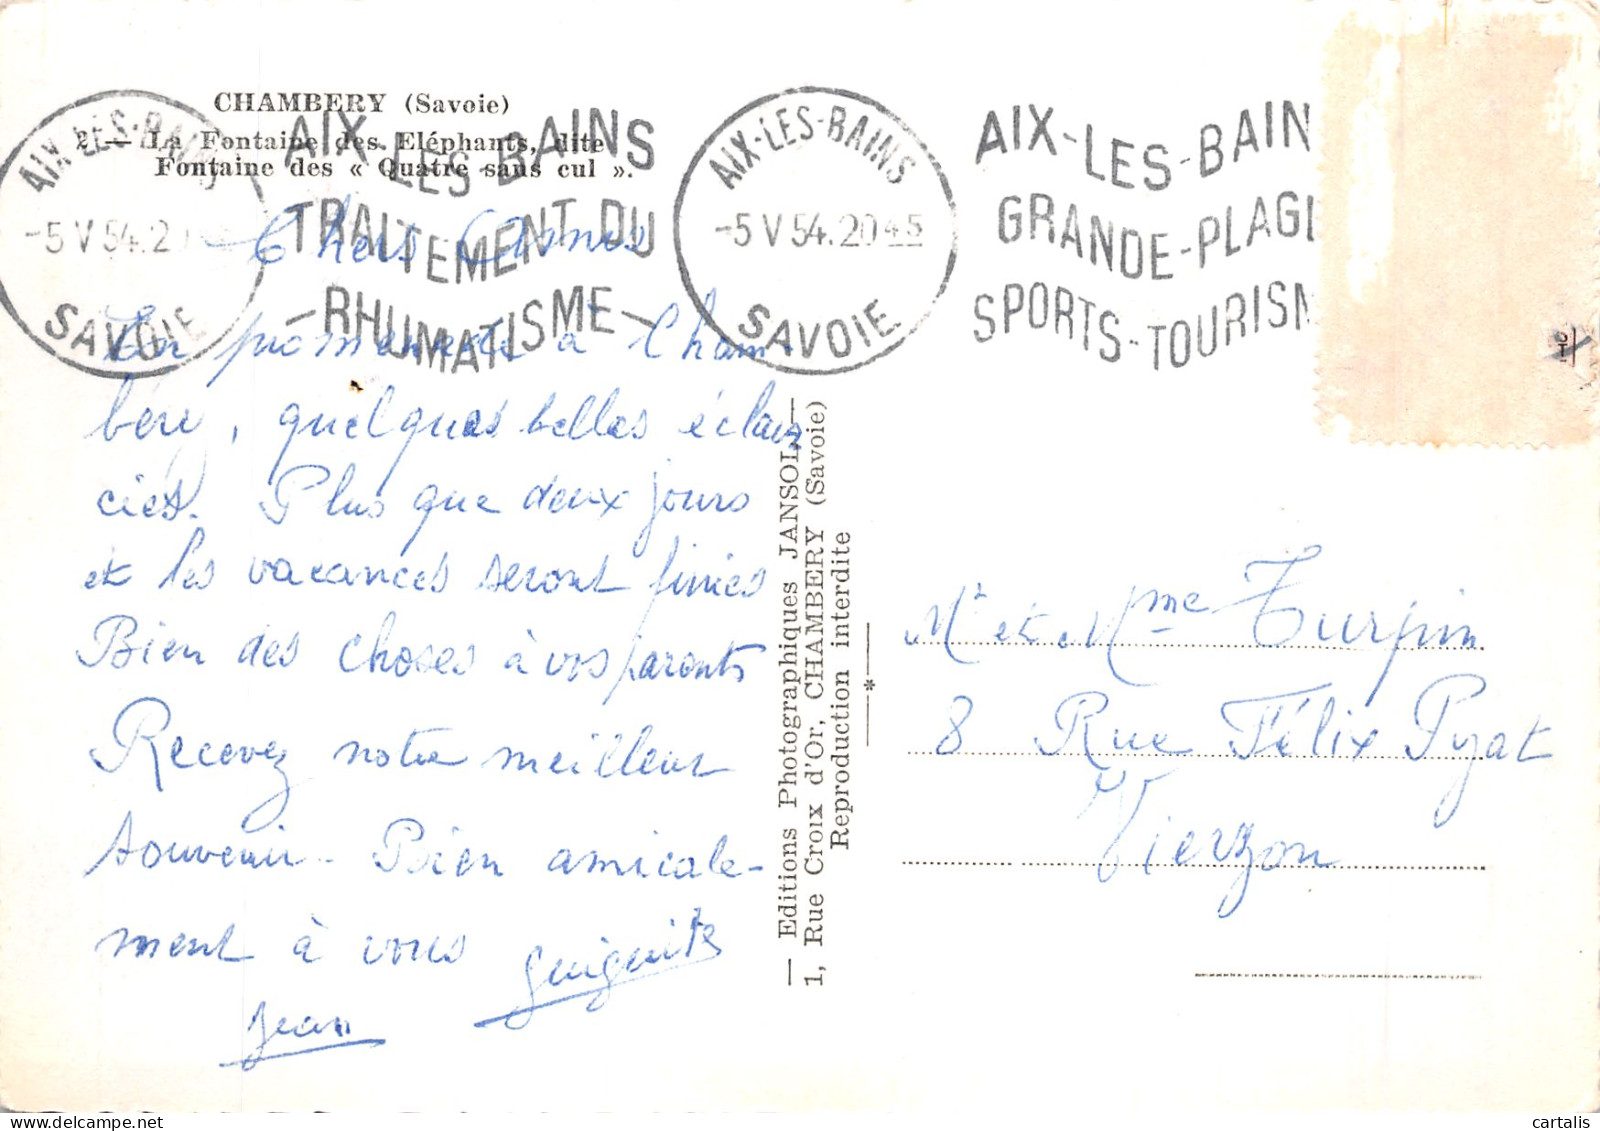 CHAMBERY (Savoie)
2. — La Fontaine des Eléphants, dite
Fontaine des « Quatre sans cul ».
AIX-LES-BAINS
-5 V 54.20
SAVOIE
AIX
LES BAINS
TRAITEMENT DU
-RHUMATISME-
AIX-LES-BAINS
-5 V 54.20 45
SAVOIE
AIX-LES-BAIN
GRANDE-PLAG
SPORTS-TOURISM
Chers Amis
En promenade à Cham-
bery, quelques belles éclair
cies. Plus que deux jours
et les vacances seront finies
Bien des choses à vos parents
Recevez notre meilleur
souvenir - Bien amicale-
ment à vous Guiguite
Jean
— Editions Photographiques JANSOL —
1, Rue Croix d'Or, CHAMBERY (Savoie)
Reproduction interdite
*
Mr et Mme Turpin
8 Rue Félix Pyat
Vierzon
cartalis